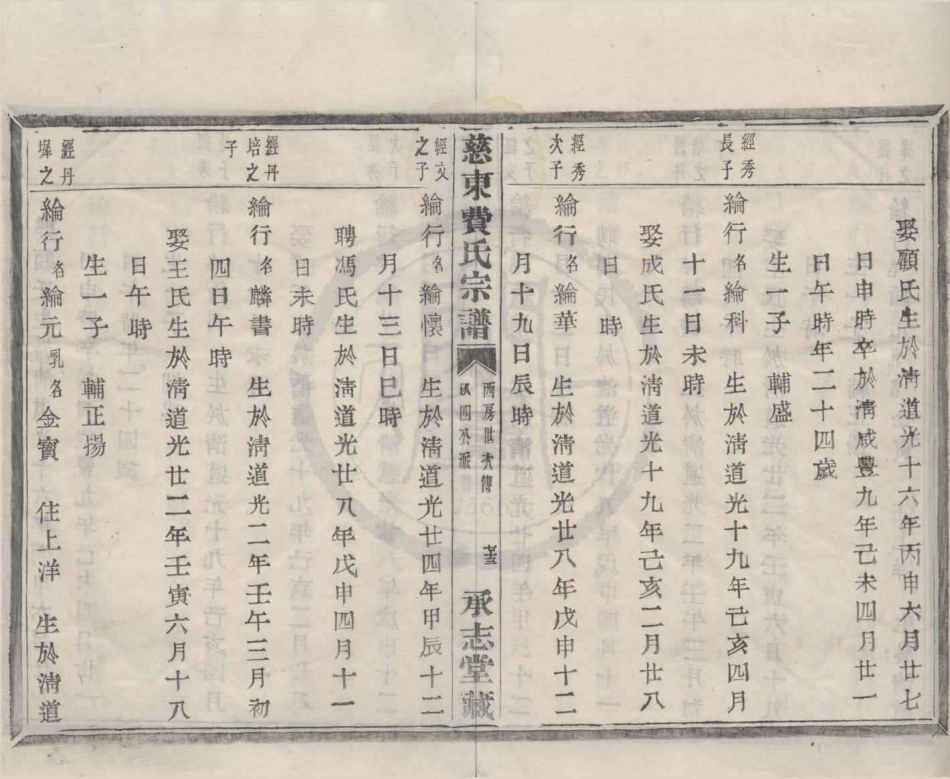 娶顧氏生於淸道光十六年丙申六月廿七
日申時卒於淸咸豐九年己未四月廿一
日午時年二十四歲
生一子 輔盛
經秀長子
綸行名綸科 生於淸道光十九年己亥四月
十一日未時
娶成氏生於淸道光十九年己亥二月廿八
日時
經秀次子
綸行名綸華 生於淸道光廿八年戊申十二
月十九日辰時
慈東費氏宗譜
西房世次傳
四公派
承志堂藏
經文之子
綸行名綸懷 生於淸道光廿四年甲辰十二
月十三日巳時
聘馮氏生於淸道光廿八年戊申四月十一
日未時
經丹培之子
綸行名麟書 生於淸道光二年壬午三月初
四日午時
娶王氏生於淸道光廿二年壬寅六月十八
日午時
生一子 輔正揚
經丹墀之
綸行名綸元乳名金寳 住上洋 生於淸道